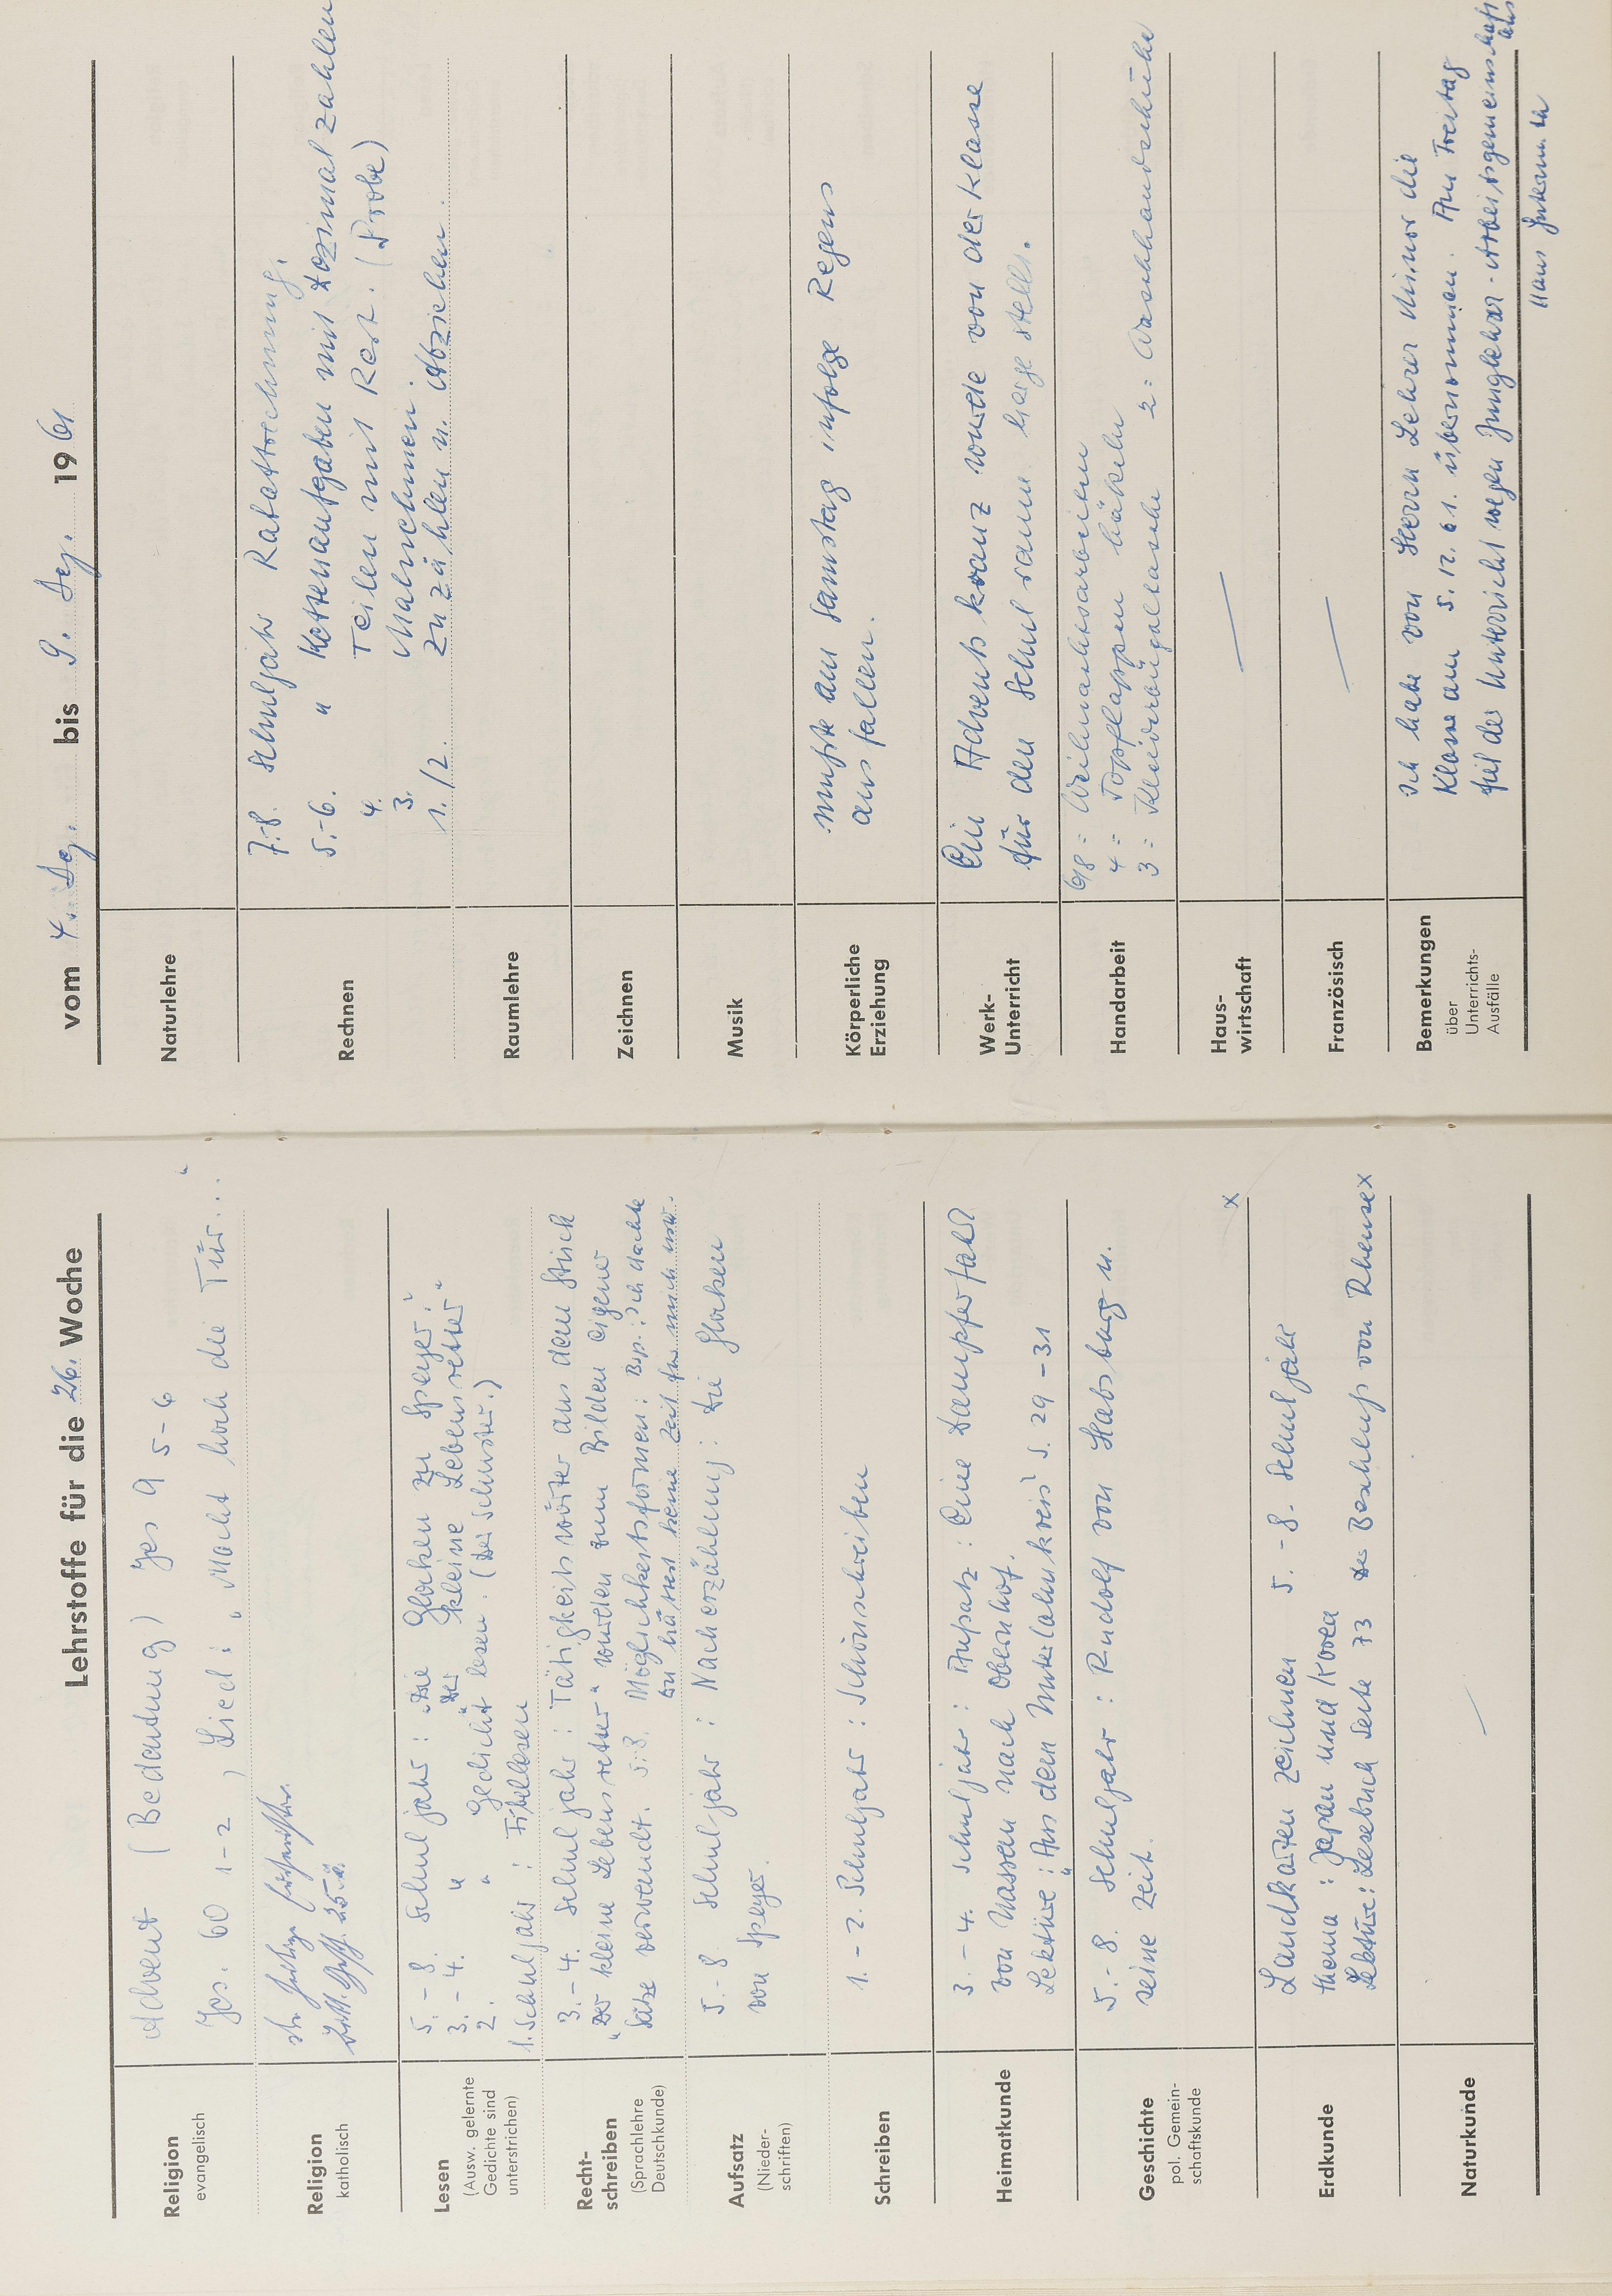 Lehrstoffe für die 26. Woche
Religion
evangelisch
Advent (Bedeutung) Jes 9 5-6
Jes. 60 1-2, Lied: „Macht hoch die Tür..."
Religion
katholisch
Lesen
(Ausw. gelernte
Gedichte sind
unterstrichen)
5.-8. Schuljahr: „Die Glocken zu Speyer"
3.-4. " „Der kleine Lebensretter"
2. " Gedicht lesen. (Der Schuster.)
1. Schuljahr: Fibellesen
Recht-
schreiben
(Sprachlehre
Deutschkunde)
3.-4. Schuljahr: Tätigkeitswörter aus dem Stück
„Der kleine Lebensretter" wurden zum Bilden eigener
Sätze verwendt. 5.-8. Möglichkeitsformen: Bsp.: ich dachte
du hättest keine Zeit für mich usw.
Aufsatz
(Nieder-
schriften)
5.-8 Schuljahr: Nacherzählung: Die Glocken
von Speyer.
Schreiben
1.-2. Schuljahr: Schönschreiben
Heimatkunde
3.-4. Schuljahr: Aufsatz: Eine Dampferfahrt
von Nassau nach Obernhof.
Lektüre: „Aus dem Unterlahnkreis" S. 29-31
Geschichte
pol. Gemein-
schaftskunde
5.-8. Schuljahr: Rudolf von Habsburg u.
seine Zeit.
x
Erdkunde
Landkarten zeichnen 5.-8. Schuljahr
Thema: Japan und Korea
Lektüre: Lesebuch Seite 73 Der Beschluß von Rhense x
Naturkunde
vom 4. Dez. bis 9. Dez. 1961
Naturlehre
Rechnen
7.-8. Schuljahr Rabattrechnung.
5.-6. " Kettenaufgaben mit Dezimalzahlen
4. Teilen mit Rest. (Probe)
3. Malnehmen.
1./2. Zuzählen u. Abziehen.
Raumlehre
Zeichnen
Musik
Körperliche
Erziehung
mußte am Samstag infolge Regens
ausfallen.
Werk-
Unterricht
Ein Adventskranz wurde von der Klasse
für den Schulraum hergestellt.
Handarbeit
6/8 = Weihnachtsarbeiten
4 = Topflappen häkeln
3 = Kleiderbügeltasche 2 = Waschhandschuhe
Haus-
wirtschaft
Französisch
Bemerkungen
über
Unterrichts-
Ausfälle
Ich habe von Herrn Lehrer Minor die
Klasse am 5.12.61. übernommen. Am Freitag
fiel der Unterricht wegen Junglehrer-Arbeitsgemeinschaft
aus
Hans